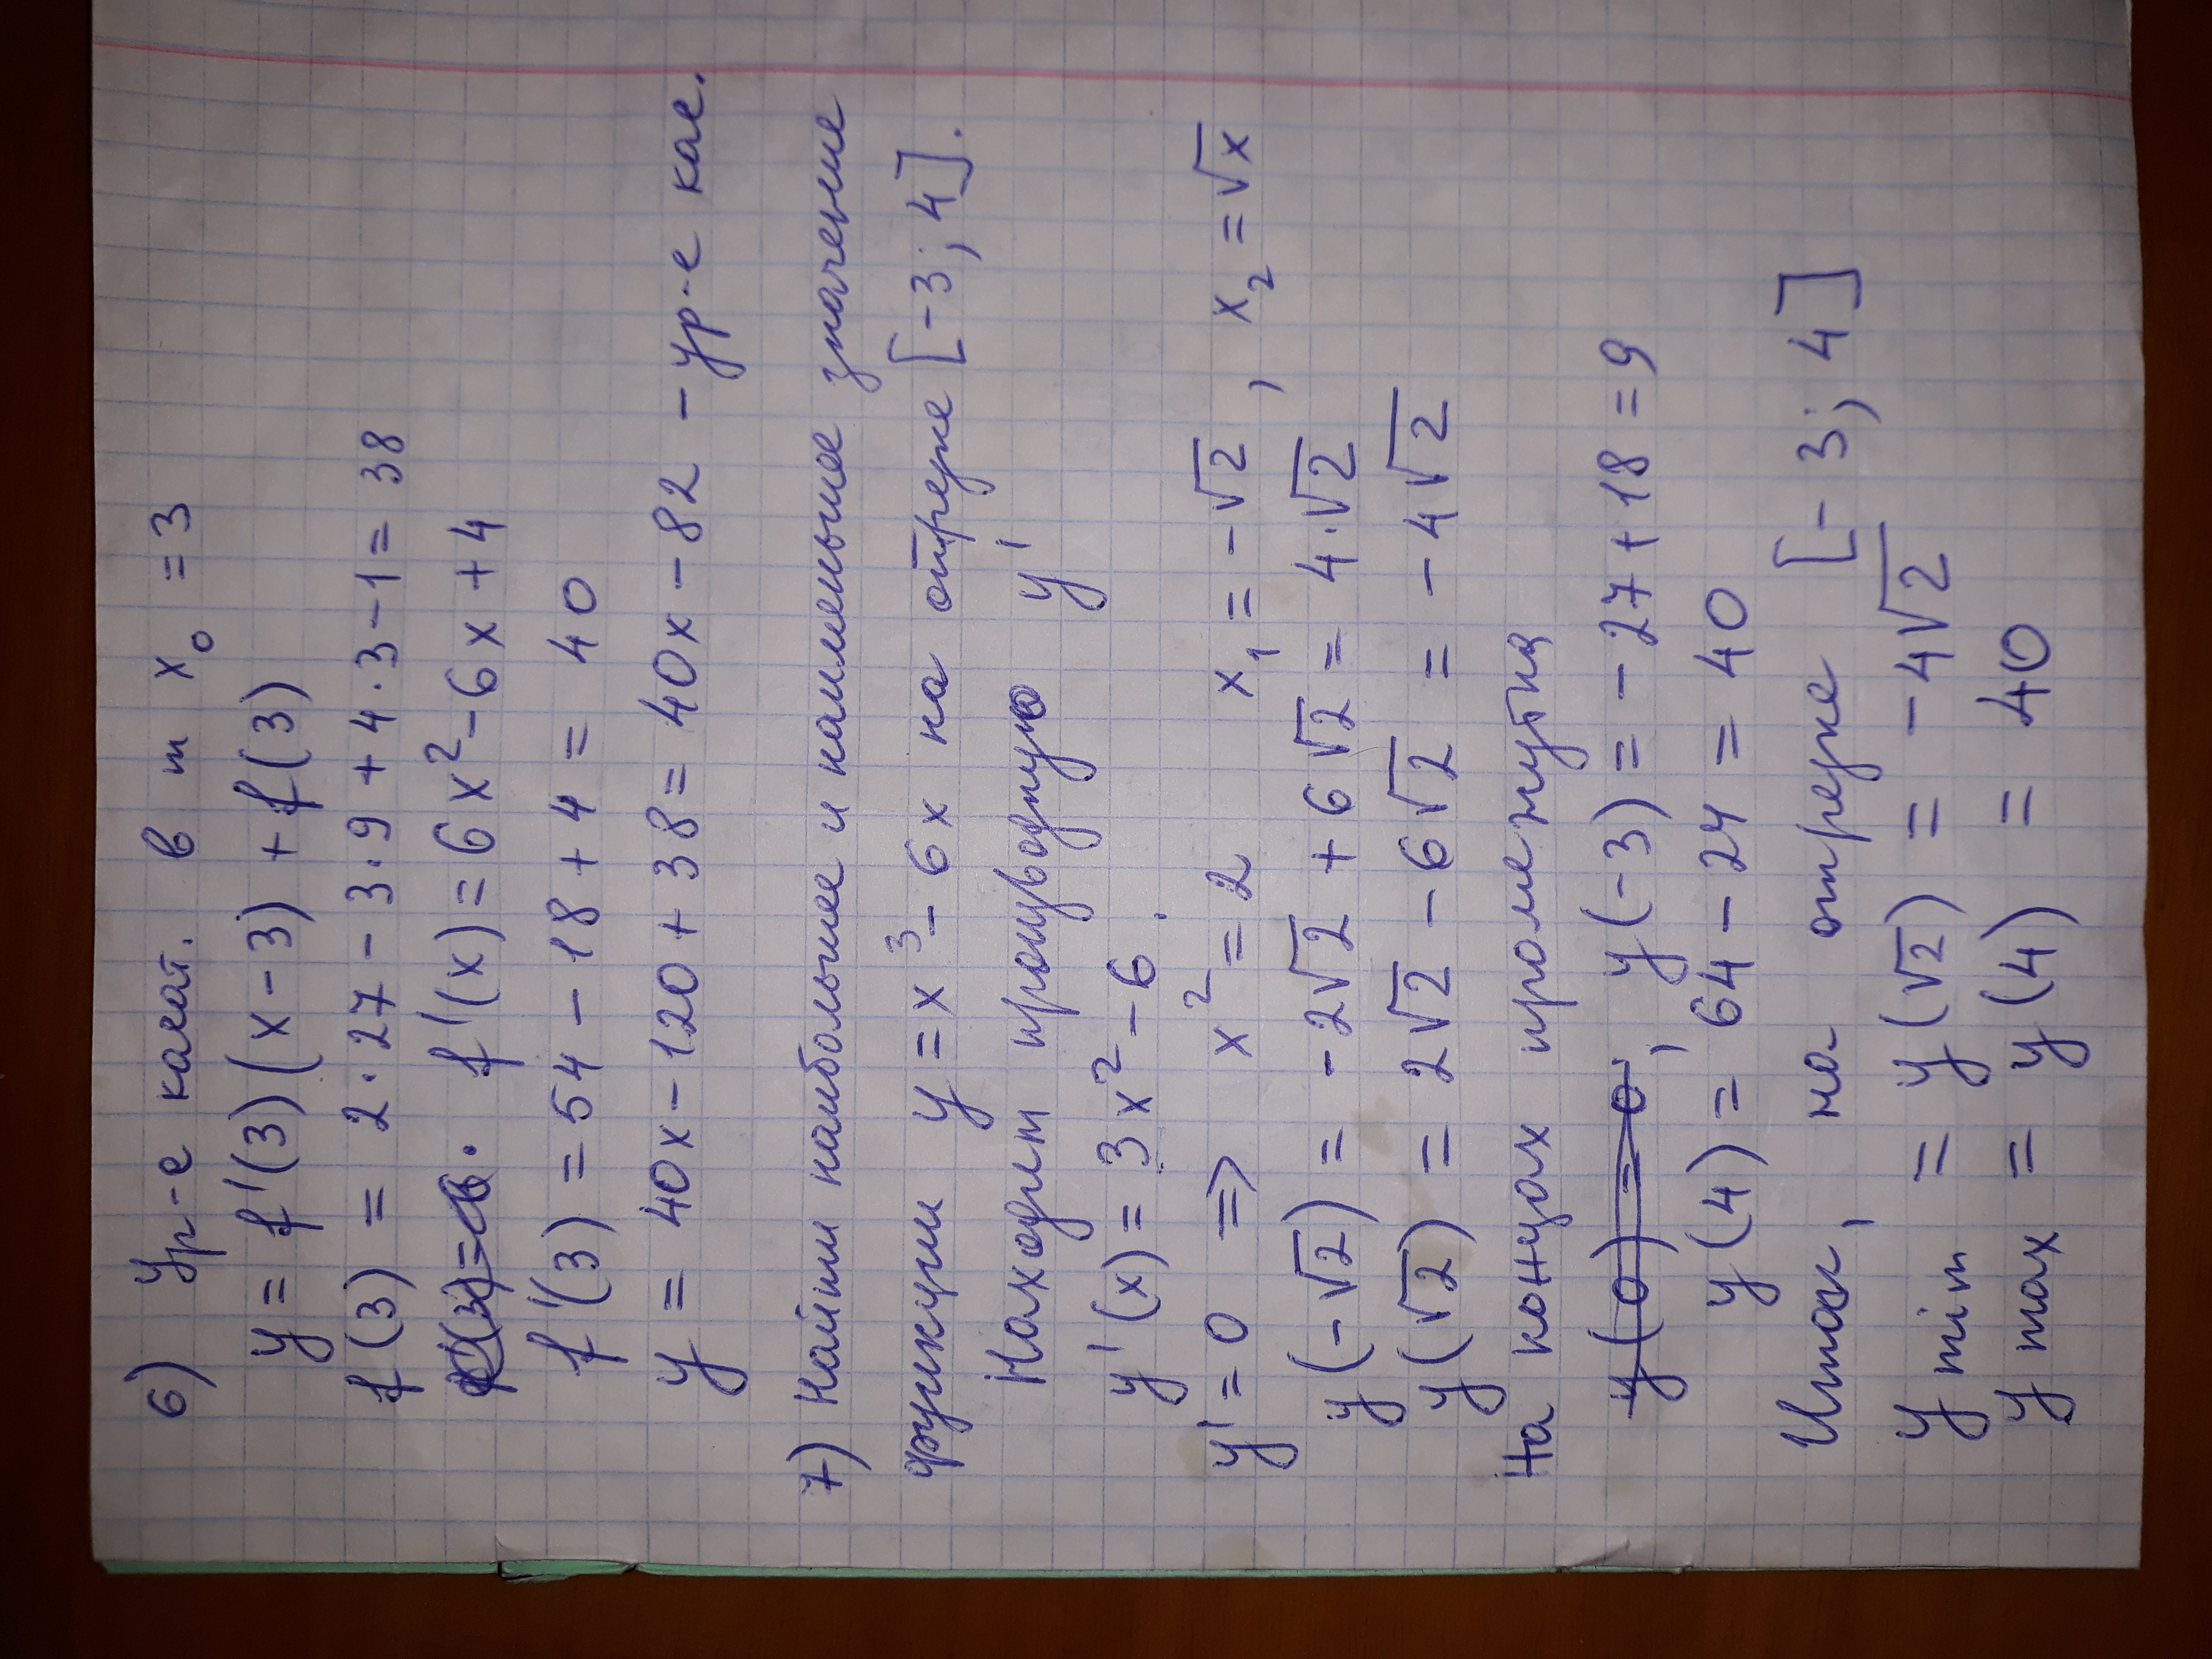 6) Ур-е касат. в т x₀ = 3
y = f'(3)(x-3) + f(3)
f(3) = 2·27 - 3·9 + 4·3 - 1 = 38
f'(x) = 6x² - 6x + 4
f'(3) = 54 - 18 + 4 = 40
y = 40x - 120 + 38 = 40x - 82 - ур-е кас.
7) Найти наибольшее и наименьшее значение
функции y = x³ - 6x на отрезке [-3; 4].
Находим производную y'
y'(x) = 3x² - 6.
y' = 0 => x² = 2 x₁ = -√2, x₂ = √x
y(-√2) = -2√2 + 6√2 = 4·√2
y(√2) = 2√2 - 6√2 = -4√2
На концах промежутка
y(0) = 0, y(-3) = -27 + 18 = 9
y(4) = 64 - 24 = 40
Итак, на отрезке [-3; 4]
y min = y(√2) = -4√2
y max = y(4) = 40